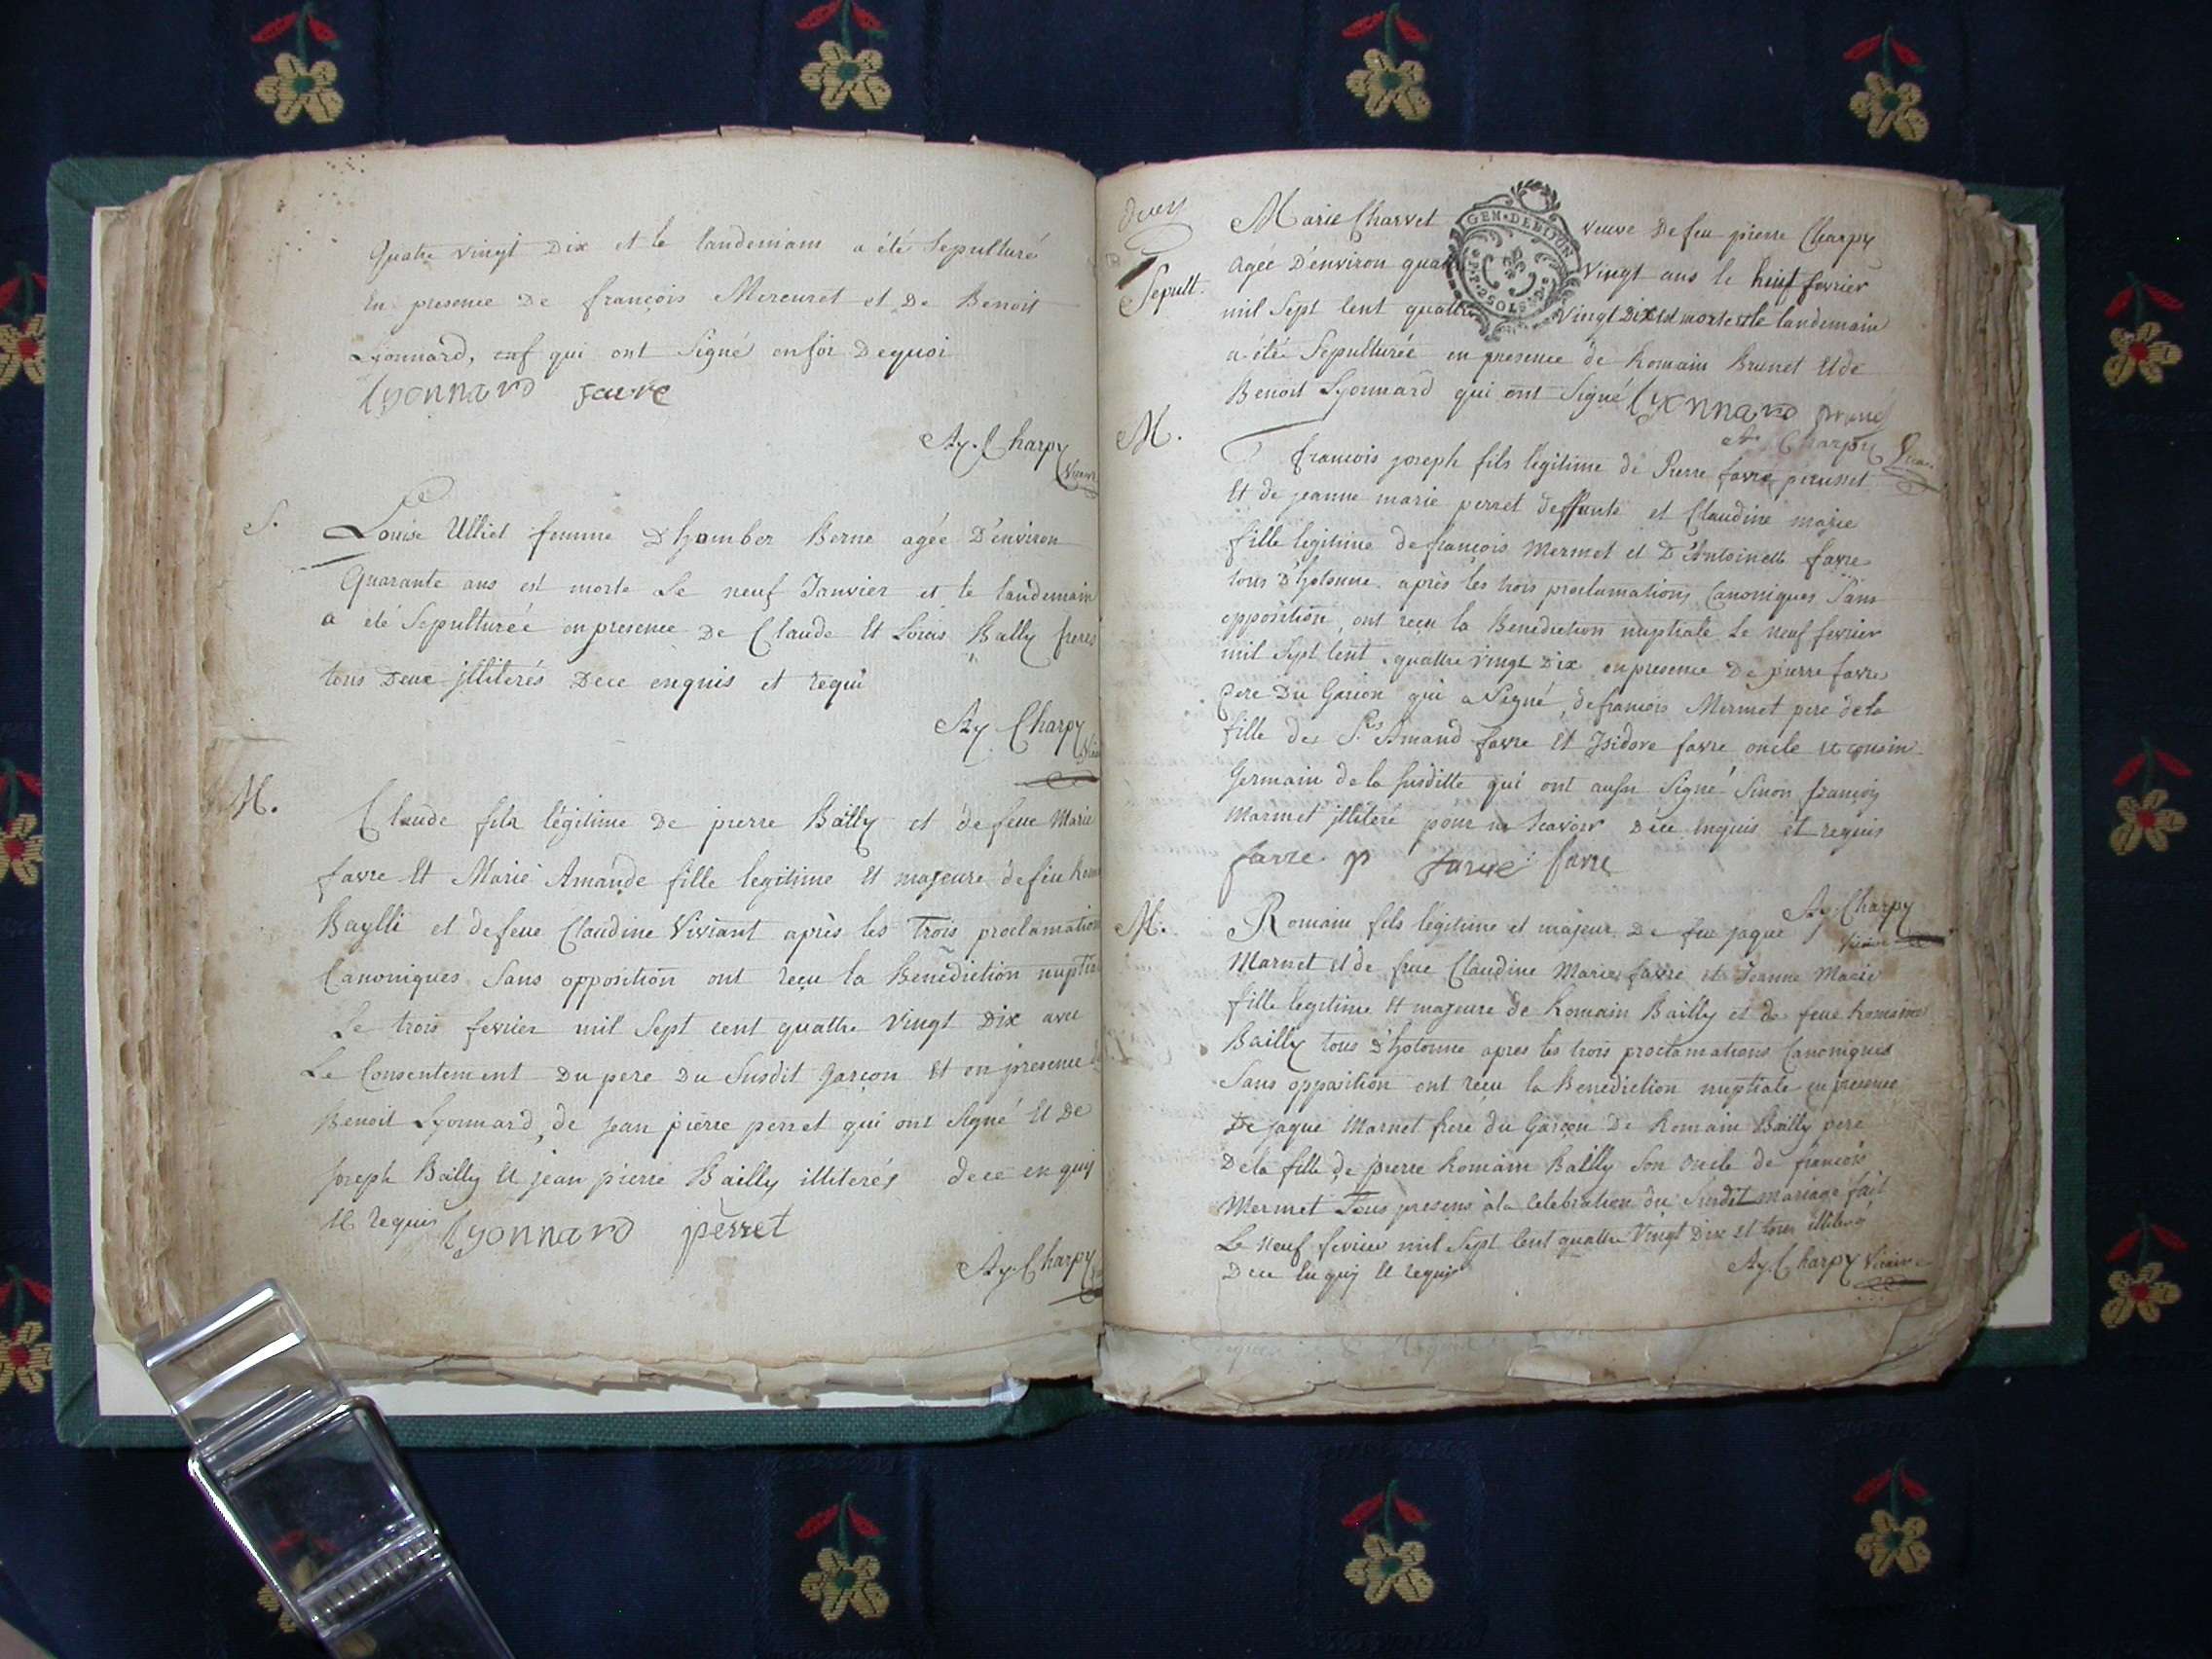 Quatre vingt Dix et le landemain a été Sepulturé
En presence De françois Mercuret et De Benoit
Lyonnard, qui ont Signé enfoi Dequoi
lyonnard favre
Ay. Charpy
Vicaire
S.
Louise Ulliet femme D'hÿamber Berne agée D'environ
Quarante ans est morte Le neuf Janvier et le landemain
a été Sepulturéé en presence De Claude Et Loüis Bally freres
tous Deux jlliterés Dece enquis et requi
Ay Charpy
M.
Claude fils légitime De pierre Bailly et de feue Marie
favre Et Marie Amande fille legitime Et majeure de feu
Baylli et de feue Claudine Viviant après les Trois proclamation
Canoniques Sans opposition ont reçu la Benediction nuptia
Le trois fevrier mil Sept cent quattre Vingt Dix avec
Le Consentement Du pere Du Susdit Garçon Et en presence
Benoit Lyonnard, de jean pierre perret qui ont Signé Et De
joseph Bailly Et jean pierre Bailly illiterés dece en quis
Et requis lyonnard perret
Ay. Charpy
deux
Sepult.
GEN. DE DIJON
Marie Charvet veuve De feu pierre Charpy
agée D'environ quatre Vingt ans le huit fevrier
mil Sept Cent quattre Vingt Dix est morte et le landemain
a été Sepulturée en presence de Romain Brunet Et de
Benoit Lyonnard qui ont Signé lyonnard brunet
Ay Charpy Vicaire
M.
francois joseph fils legitime de Pierre favre
Et de jeanne marie perret deffunte et Claudine marie
fille legitime de françois Mermet et D'Antoinette favre
tous D'hotonne après les trois proclamations Canoniques Sans
opposition, ont reçu la Benediction nuptiale Le neuf fevrier
mil Sept Cent quattre vingt Dix en presence De pierre favre
Pere Du Garçon qui a Signé, de francois Mermet pere de la
fille des Srs Amand favre Et Jsidore favre oncle et cousin
Germain de la susditte qui ont aussi Signé Sinon françois
Marmet jlliteré pour ne Scavoir Dece enquis et requis
favre favre favre
Ay. Charpy
Vicaire
M.
Romain fils légitime et majeur De feu jaque
Marnet et de feue Claudine Marie favre et Jeanne Marie
fille legitime Et majeure de Romain Bailly et de feue Romaine
Bailly tous D'hotonne apres les trois proclamations Canoniques
Sans opposition ont reçu la Benediction nuptiale en presence
De jaque Marnet frere du Garçon De Romain Bailly pere
De la fille de pierre Romain Bailly Son oncle de francois
Mermet Tous presens à la Celebration du Susdit mariage fait
Le Neuf fevrier mil Sept Cent quattre Vingt Dix et tous illiterés
Dece En quis Et requis Ay. Charpy Vicaire